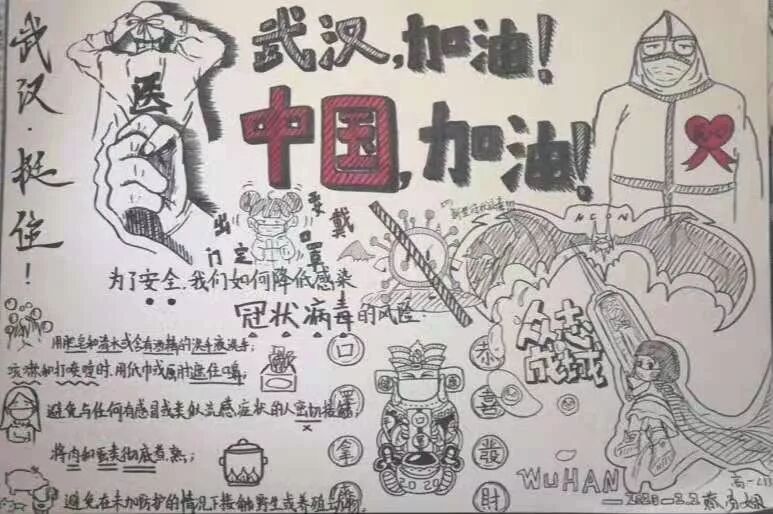 武汉·挺住!
医
武汉,加油!
中国,加油!
出门定要戴口罩
NCON
为了安全,我们如何降低感染
冠状病毒的风险:
用肥皂和清水或含有酒精的洗手液洗手;
咳嗽和打喷嚏时,用纸巾或屈肘遮住口鼻;
避免与任何有感冒或类似流感症状的人密切接触;
将肉和蛋类彻底煮熟;
避免在未加防护的情况下接触野生或养殖动物。
恭喜發財
2020
众志成城
WUHAN